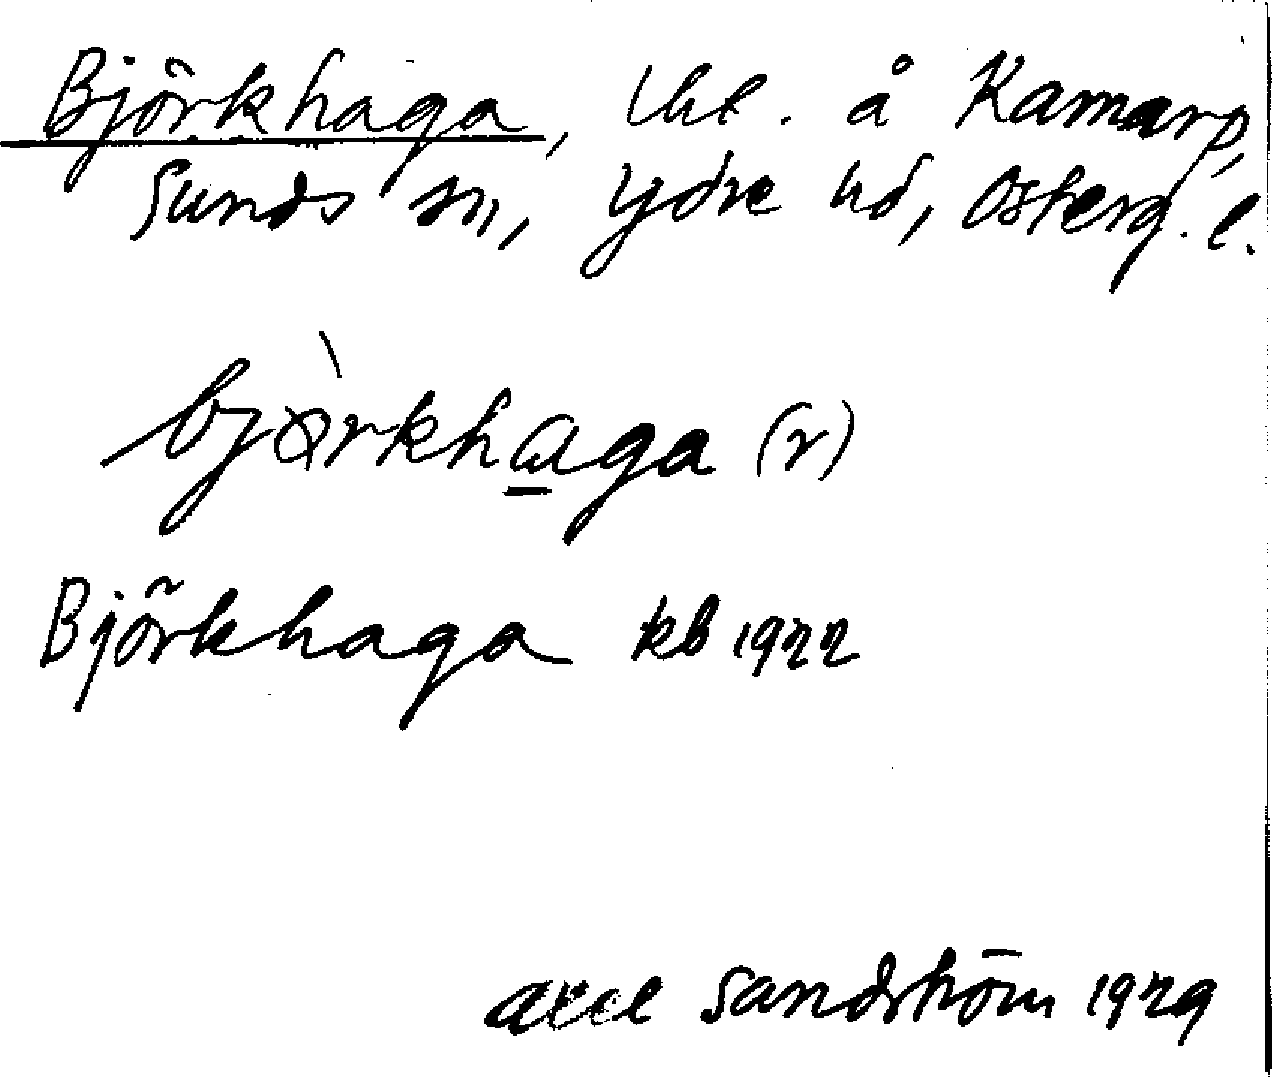 Björkhaga, lht. å Kamarp,
Sunds sn, Ydre hd, Österg. l.
bjørkhaga (r)
Björkhaga kb 1922
Axel Sandström 1929